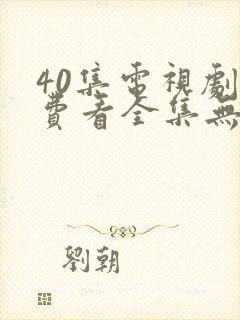 40集電視劇
費看全集無
劉朝